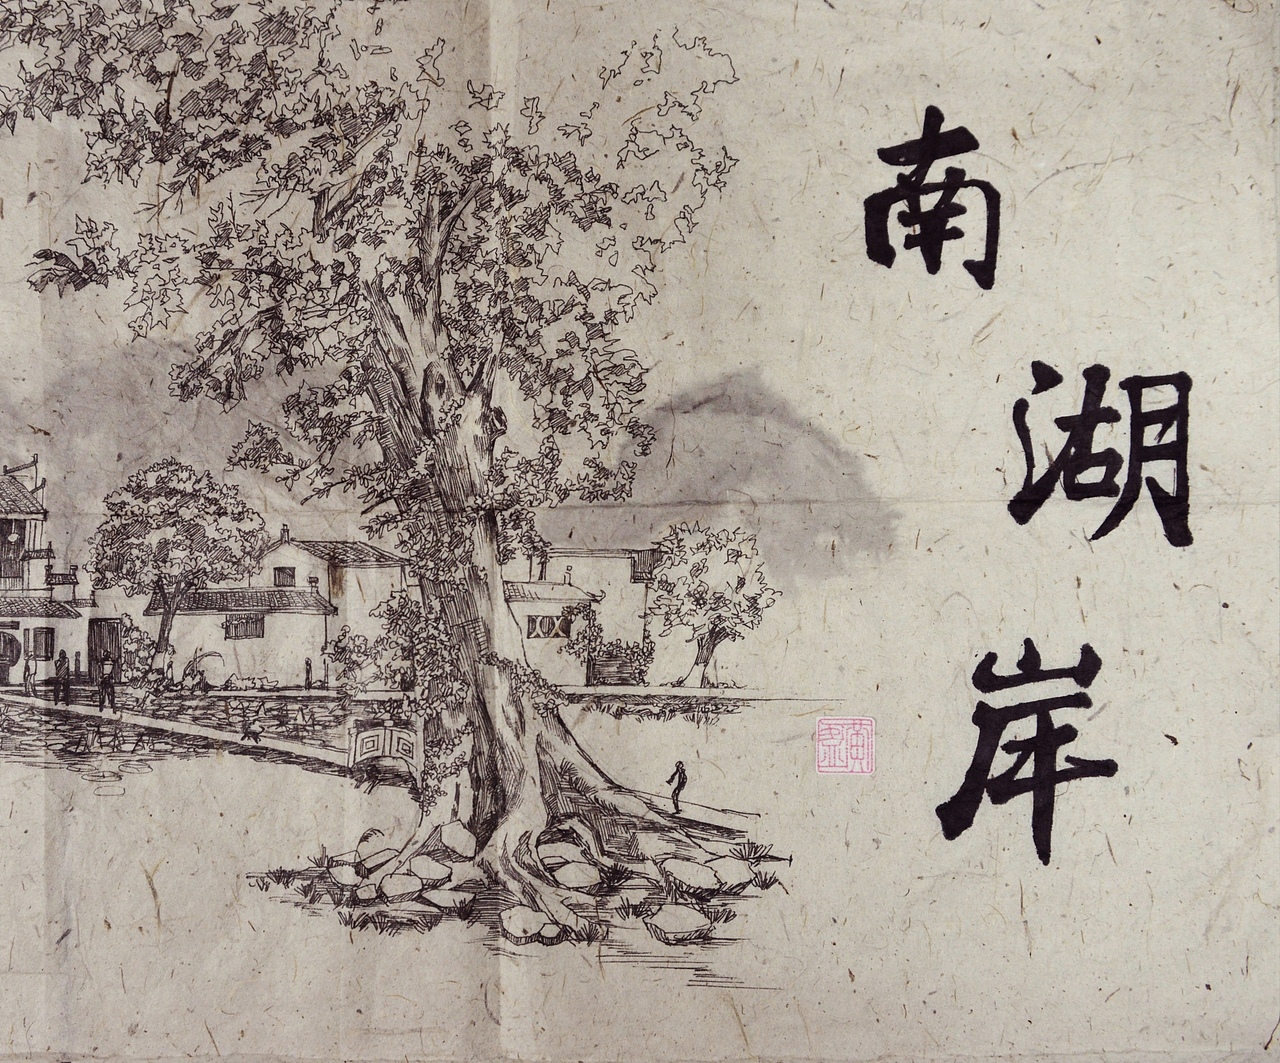 南
湖
岸